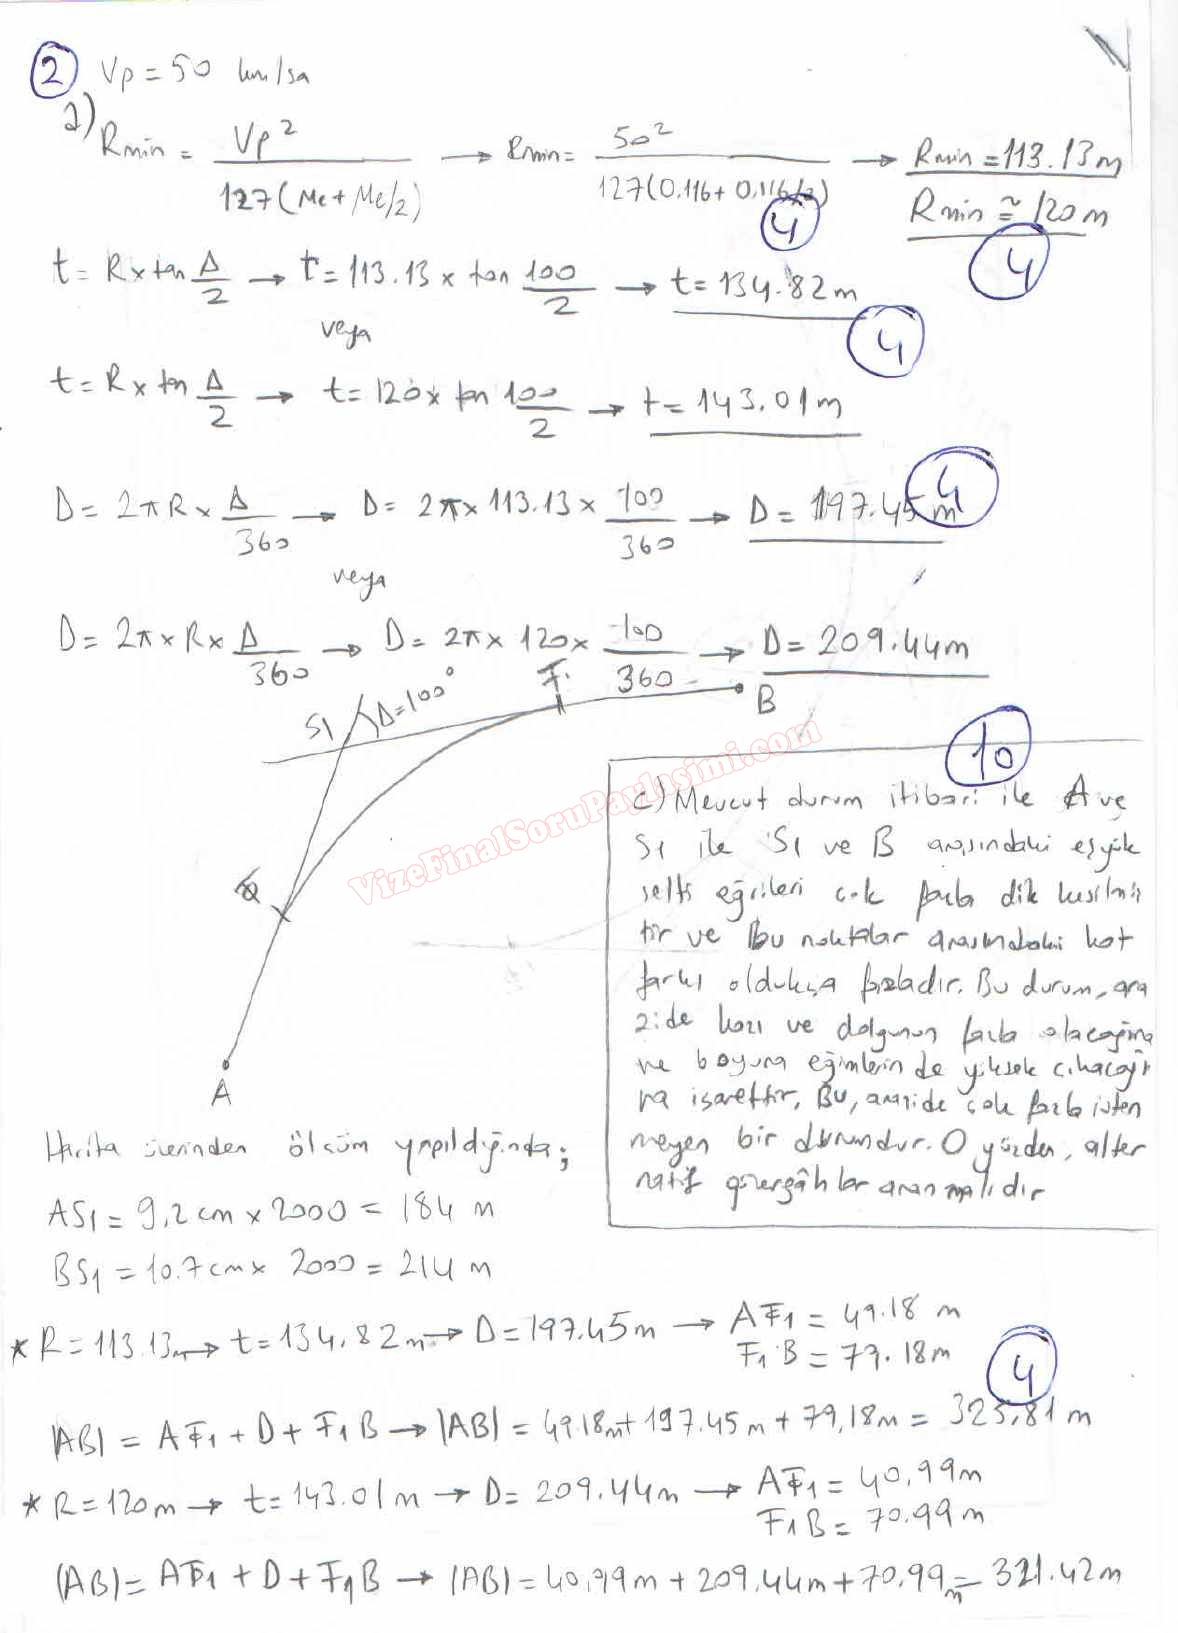 ② Vp = 50 km/sa
a) Rmin = Vp² / 127(Me + Me/2) → Rmin = 50² / 127(0.116 + 0.116/2) → Rmin = 113.13 m
Rmin ≅ 120 m
4
4
t = R x tan Δ/2 → t = 113.13 x tan 100/2 → t = 134.82 m
4
veya
t = R x tan Δ/2 → t = 120 x tan 100/2 → t = 143.01 m
D = 2πR x Δ/360 → D = 2π x 113.13 x 100/360 → D = 197.45 m
4
veya
D = 2π x R x Δ/360 → D = 2π x 120 x 100/360 → D = 209.44 m
S1 Δ=100° F. B
A
10
c) Mevcut durum itibari ile A ve
S1 ile S1 ve B arasındaki eşyük
selti eğrileri çok fazla dik kesilmiş
tir ve bu noktalar arasındaki kot
farkı oldukça fazladır. Bu durum, ara
zide kazı ve dolgunun fazla olacağına
ve boyuna eğimlerin de yüksek çıkacağı
na işarettir. Bu, arazide çok fazla isten
meyen bir durumdur. O yüzden, alter
natif güzergâhlar aranmalıdır
VizeFinalSoruPaylasimi.com
Harita üzerinden ölçüm yapıldığında;
AS1 = 9,2 cm x 2000 = 184 m
BS1 = 10.7 cm x 2000 = 214 m
* R = 113.13m → t = 134.82 m → D = 197.45 m → AF1 = 49.18 m
F1B = 79.18 m
4
|AB| = AF1 + D + F1B → |AB| = 49.18m + 197.45m + 79,18m = 325,81 m
* R = 120 m → t = 143.01 m → D = 209.44 m → AF1 = 40,99 m
F1B = 70.99 m
|AB| = AF1 + D + F1B → |AB| = 40,99 m + 209.44 m + 70,99 m = 321.42 m